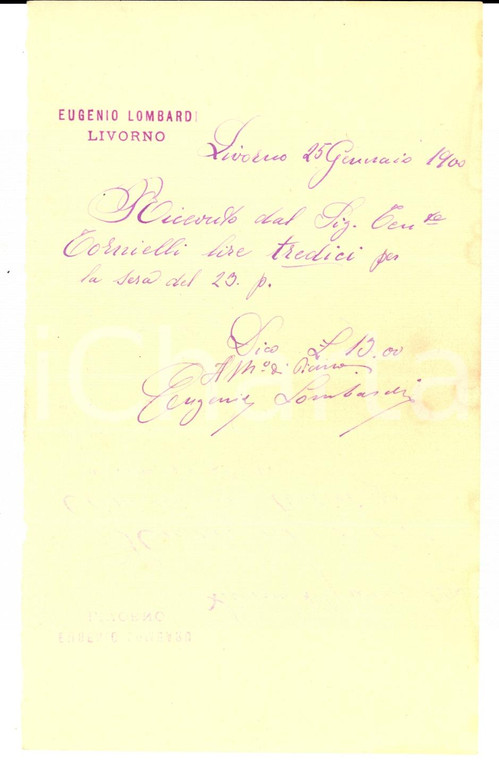 EUGENIO LOMBARDI
LIVORNO
Livorno 25 Gennaio 1900
Ricevuto dal Sig. Ten.te
Cornielli lire tredici per
la sera del 23. p.
Dico £ 13.00
Il M.o di Piano
Eugenio Lombardi
LIVORNO
EUGENIO LOMBARDI